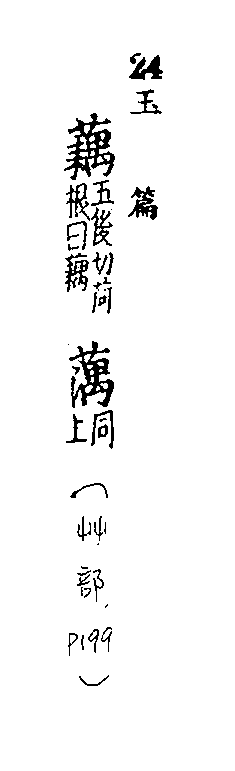 24
玉篇
藕五後切荷根曰藕 𦺈同上（艸部，P199）